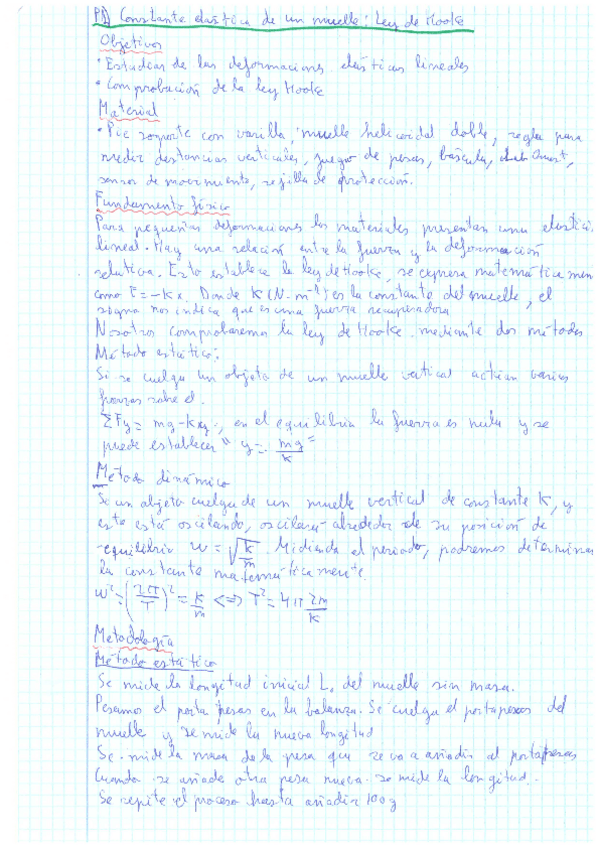 P1) Constante elástica de un muelle: Ley de Hooke
Objetivos
• Estudiar de las deformaciones elásticas lineales
• Comprobación de la ley Hooke
Material
• Pie soporte con varilla, muelle helicoidal doble, regla para
medir distancias verticales, juego de pesas, báscula,
sensor de movimiento, rejilla de protección.
Fundamento físico
Para pequeñas deformaciones los materiales presentan una elastici
lineal. Hay una relación entre la fuerza y la deformación
relativa. Esto establece la ley de Hooke, se expresa matemáticamen
como F = -Kx. Donde K (N·m⁻¹) es la constante del muelle, el
signo nos indica que es una fuerza recuperadora
Nosotros comprobaremos la ley de Hooke mediante dos métodos
Método estático:
Si se cuelga un objeto de un muelle vertical actúan varias
fuerzas sobre el.
ΣFy = mg - Kxy; en el equilibrio la fuerza es nula y se
puede establecer " y = mg/K "
Método dinámico
Si un objeto cuelga de un muelle vertical de constante K, y
este está oscilando, oscilara alrededor de su posición de
equilibrio w = √(k/m). Midiendo el periodo, podremos determinar
la constante matemáticamente.
w² = (2π/T)² = K/m <=> T² = 4π 2m/K
Metodología
Método estático
Se mide la longitud inicial L₀ del muelle sin masa.
Pesamos el porta pesas en la balanza. Se cuelga el portapesas del
muelle y se mide la nueva longitud
Se mide la masa de la pesa que se va a añadir al portapesas
Cuando se añade otra pesa nueva se mide la longitud.
Se repite el proceso hasta añadir 100g